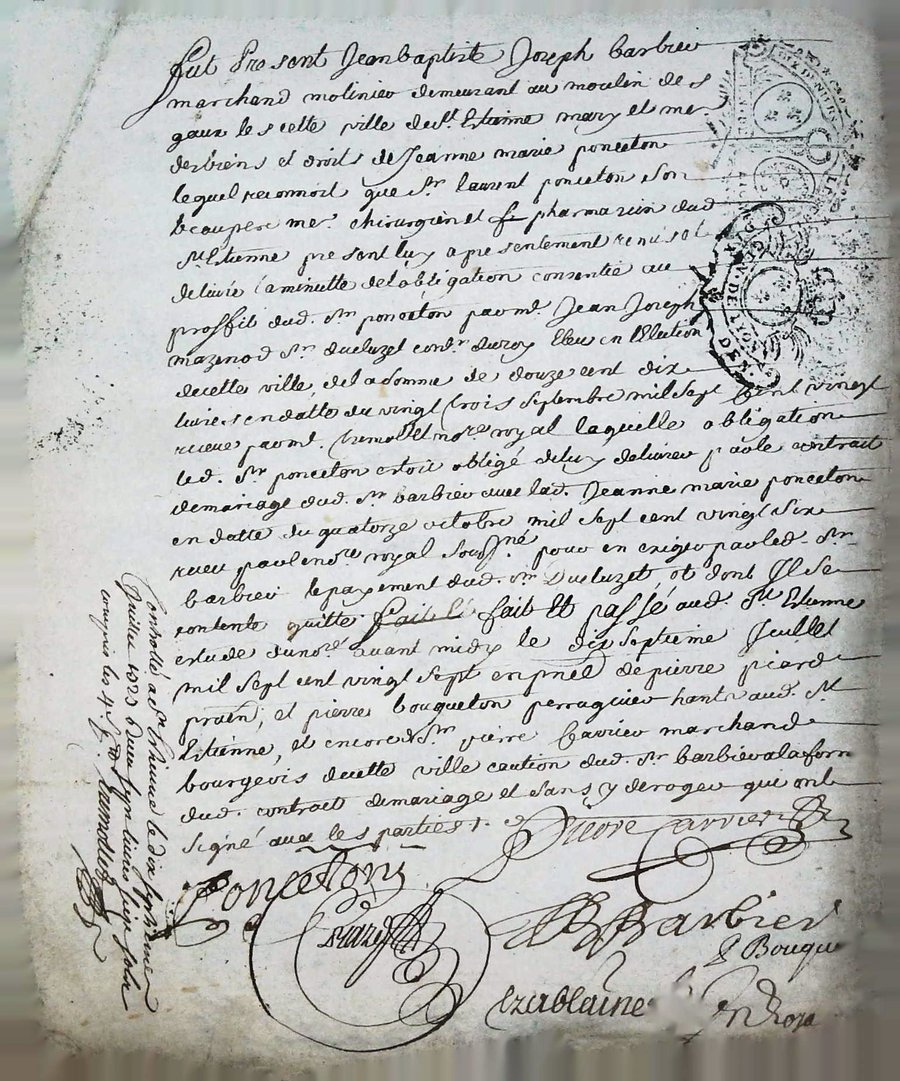 fut Present Jean baptiste Joseph barbier
marchand molinier demeurant au moulin des
gaux les cette ville de St. Estienne mary et me
des biens et droits de Jeanne marie ponceton
lequel reconnoit que Sr. laurent ponceton Son
beaupere me. chirurgien et pharmacien dud
St. Etienne present luy a presentement remis et
delivré la minutte de l'obligation consentie au
proffit dud. Sr. ponceton par mr. Jean Joseph
mazenod Sr. ducluzel conr. du roy Eleu en l'Election
de cette ville, de la somme de douze cent dix
livres en datte du vingt trois Septembre mil sept Cent vingt
receue par me. notre. royal laquelle obligation
led. Sr. ponceton estoit obligé de luy delivrer par le contrait
de mariage dud. Sr. barbier avec lad. Jeanne marie ponceton
en datte du quatorze octobre mil Sept cent vingt Six
receu par le nore. royal Soussné. pour en exiger par led. Sr.
barbier le payement dud. Sr. Ducluzel, et dont Il Se
contente quitte fait et passé aud. St. Etienne
estude du nore. avant midy le dix Septieme Jeuillet
mil Sept cent vingt Sept en pnce. de pierre picard
praen, et pierre bouqueton perruquier hants. aud. St
Estienne, et encore de Sr. pierre Carrier marchand
bourgeois de cette ville caution dud. Sr. barbier a la form
dud. contrait de mariage et Sans y deroger qui ont
Signé avec les parties
Pierre Carrier
Poncetons
Barbier
P Bouque
Controllé a St. Etienne le dix septieme